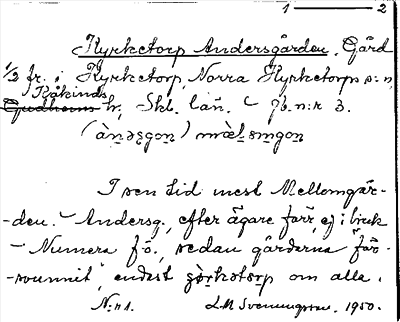 1 — 2
Kyrketorp Andersgården. Gård
1/2 fr. i Kyrketorp, Norra Kyrketorps s:n,
Kåkinds
Gudhems hr, Skb. län. — Jb. n:r 3.
(àn:əʂgon) mæ̀l:əmgon
I sen tid mest Mellomgår-
-den. — Andersg. efter ägare förr, ej i bruk
— Numera fö., sedan gårdarna "för-
-svunnit", endast çørkətorp om alla.
N:o 1. L.M. Svenungsson. 1950.